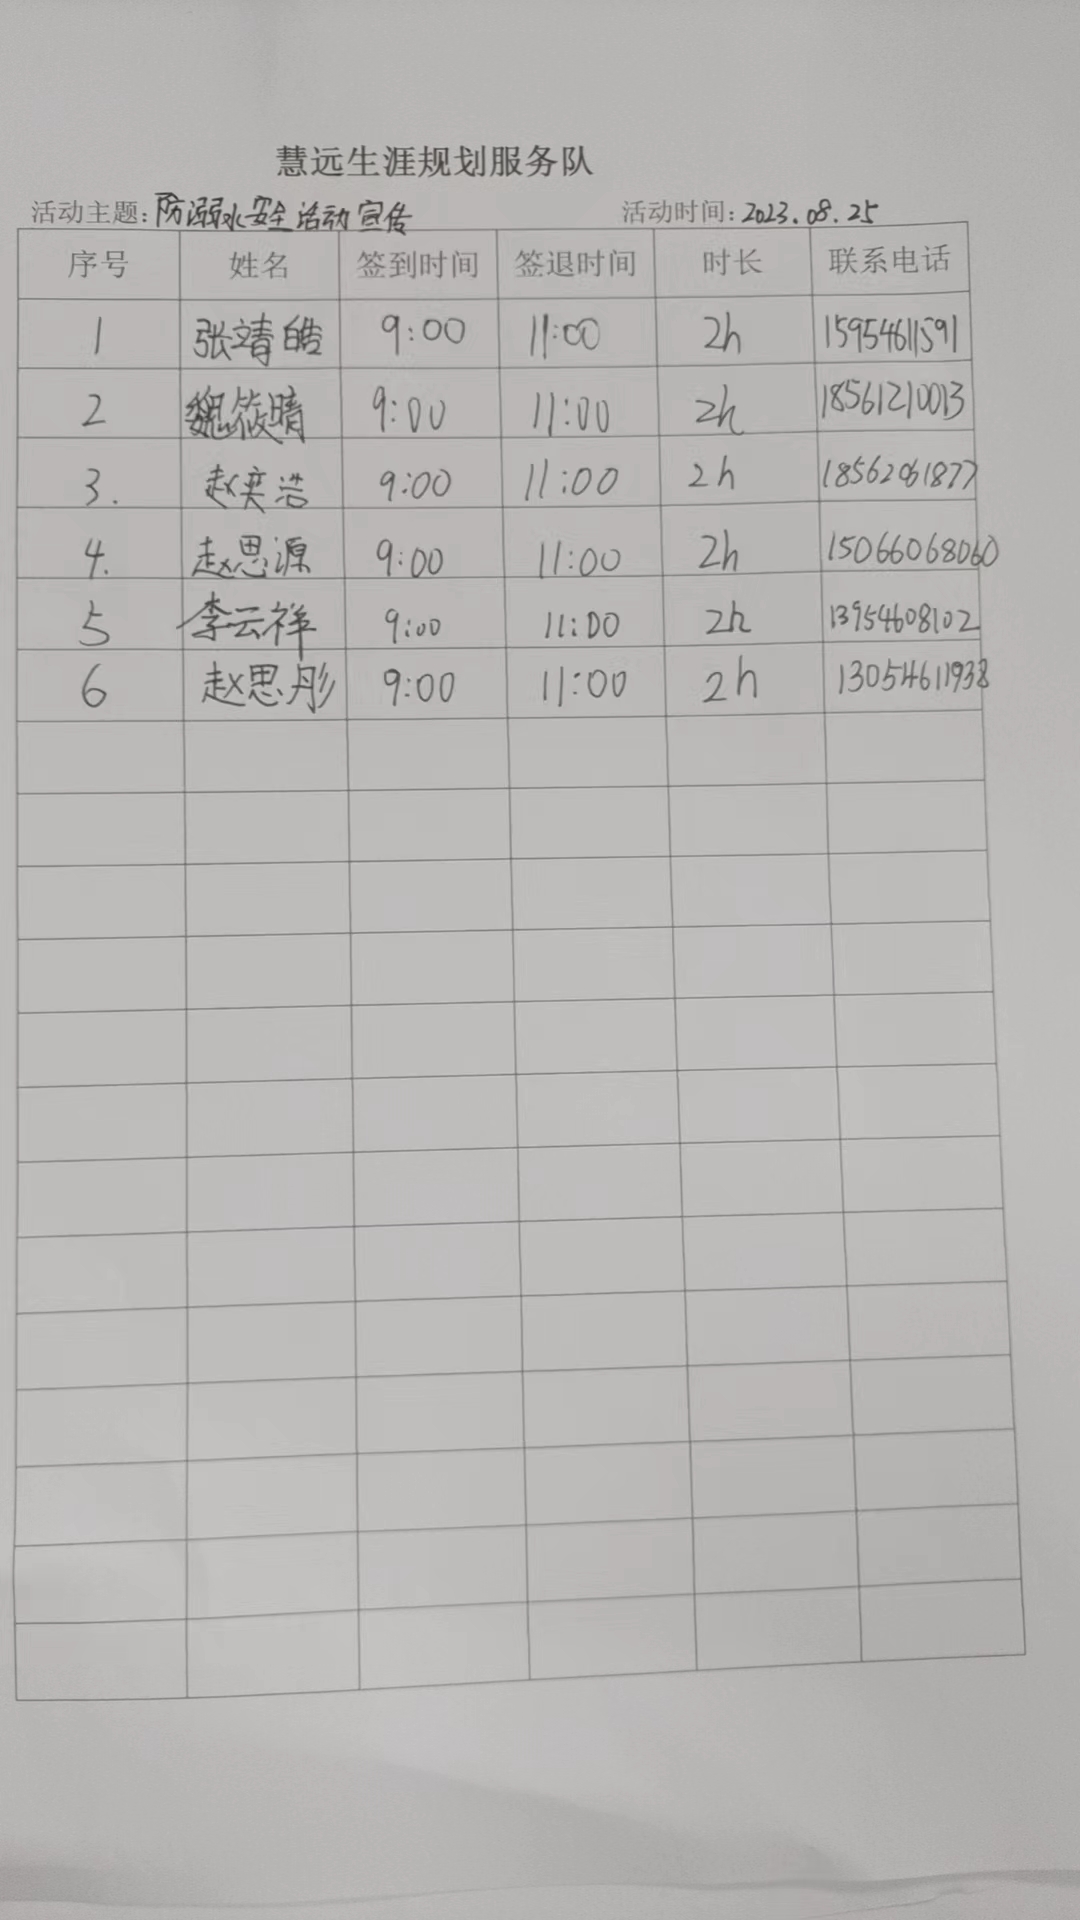 慧远生涯规划服务队
活动主题：防溺水安全活动宣传 活动时间：2023.08.25
序号 姓名 签到时间 签退时间 时长 联系电话
1 张靖皓 9:00 11:00 2h 15954611591
2 魏筱晴 9:00 11:00 2h 18561210013
3. 赵奕浩 9:00 11:00 2h 18562061877
4. 赵思源 9:00 11:00 2h 15066068060
5 李云祥 9:00 11:00 2h 13954608102
6 赵思彤 9:00 11:00 2h 13054611938